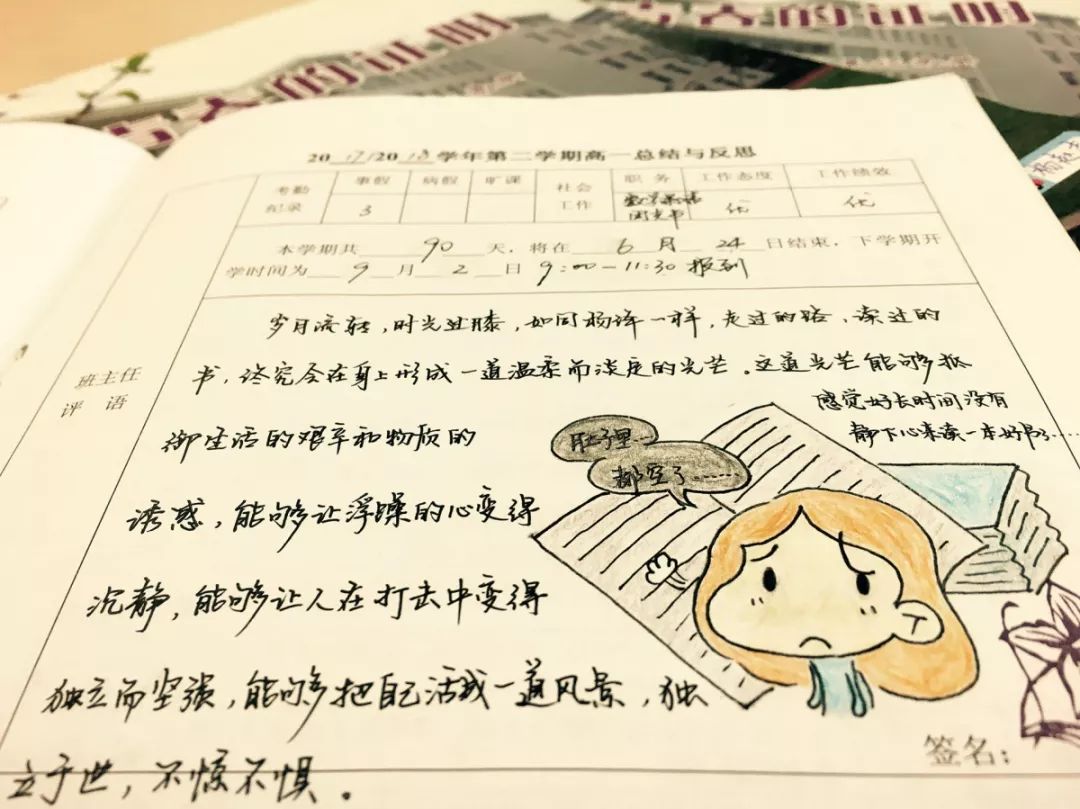 的证明
的证明
2017/2018学年第二学期高一总结与反思
考勤纪录
事假
病假
旷课
社会工作
职务
工作态度
工作绩效
3
团支书
优
优
本学期共 90 天，将在 6 月 24 日结束，下学期开
学时间为 9 月 2 日 9:00-11:30 报到
班主任
评语
岁月流转，时光过膝，如同杨绛一样，走过的路、读过的
书，终究会在身上形成一道温柔而淡定的光芒。这道光芒能够抵
御生活的艰辛和物质的
诱惑，能够让浮躁的心变得
沉静，能够让人在打击中变得
独立而坚强，能够把自己活成一道风景，独
立于世，不惊不惧。
感觉好长时间没有
静下心来读一本好书了……
肚子里…
都空了……
签名：